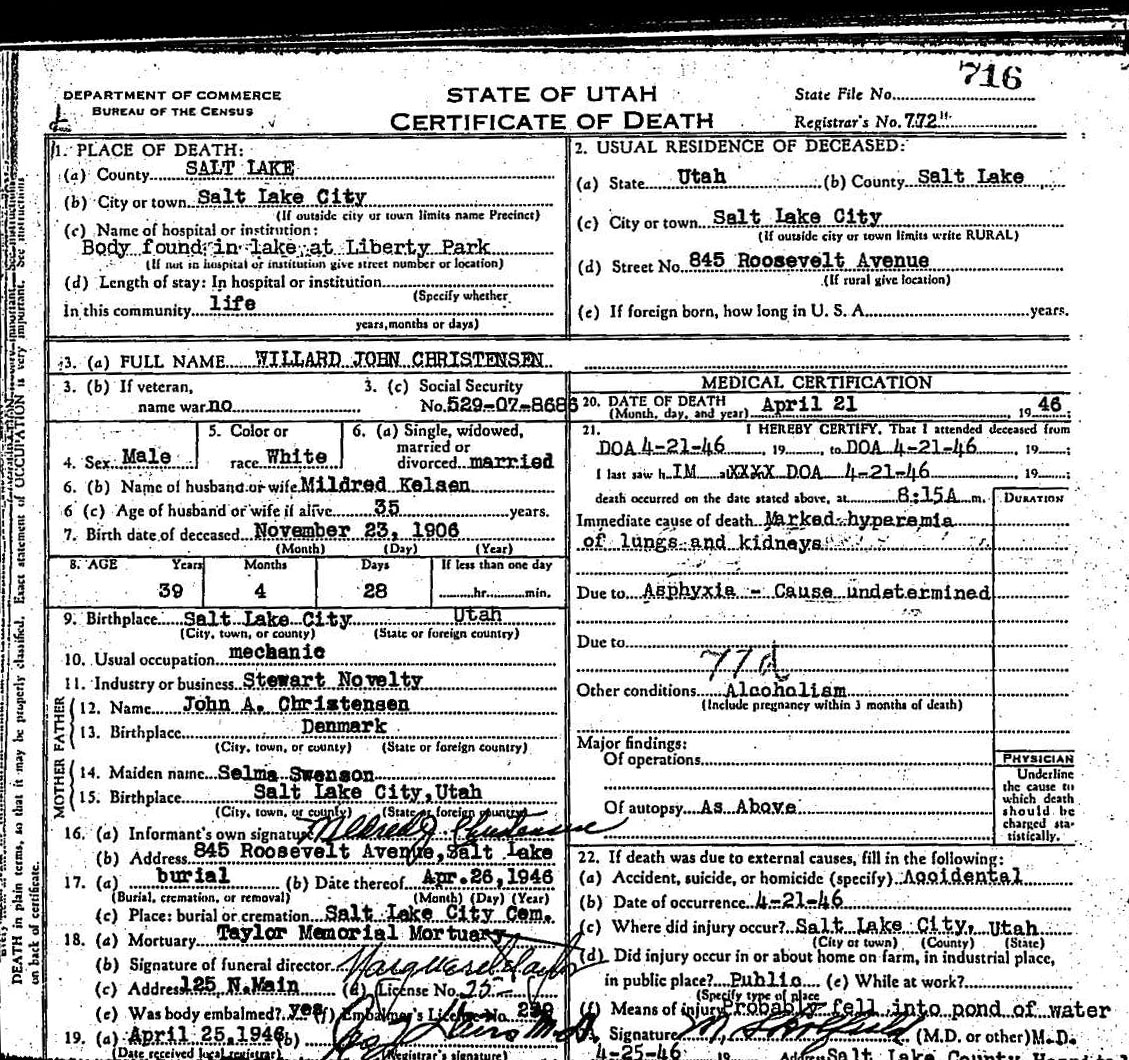 716
DEPARTMENT OF COMMERCE
BUREAU OF THE CENSUS
STATE OF UTAH
CERTIFICATE OF DEATH
State File No.
Registrar's No. 772
1. PLACE OF DEATH:
(a) County SALT LAKE
(b) City or town Salt Lake City
(If outside city or town limits name Precinct)
(c) Name of hospital or institution:
Body found in lake at Liberty Park
(If not in hospital or institution give street number or location)
(d) Length of stay: In hospital or institution
(Specify whether
In this community life
years, months or days)
2. USUAL RESIDENCE OF DECEASED:
(a) State Utah (b) County Salt Lake
(c) City or town Salt Lake City
(If outside city or town limits write RURAL)
(d) Street No. 845 Roosevelt Avenue
(If rural give location)
(e) If foreign born, how long in U. S. A. years.
3. (a) FULL NAME WILLARD JOHN CHRISTENSEN
3. (b) If veteran,
name war no
3. (c) Social Security
No. 529-07-8686
4. Sex Male
5. Color or
race White
6. (a) Single, widowed,
married or
divorced married
6. (b) Name of husband or wife Mildred Kelsen
6 (c) Age of husband or wife if alive 35 years.
7. Birth date of deceased November 23, 1906
(Month) (Day) (Year)
8. AGE Years Months Days If less than one day
39 4 28 hr. min.
9. Birthplace Salt Lake City Utah
(City, town, or county) (State or foreign country)
10. Usual occupation mechanic
11. Industry or business Stewart Novelty
FATHER
12. Name John A. Christensen
13. Birthplace Denmark
(City, town, or county) (State or foreign country)
MOTHER
14. Maiden name Selma Swenson
15. Birthplace Salt Lake City, Utah
(City, town, or county) (State or foreign country)
16. (a) Informant's own signature Mildred J. Christensen
(b) Address 845 Roosevelt Avenue, Salt Lake
17. (a) burial (b) Date thereof Apr. 26, 1946
(Burial, cremation, or removal) (Month) (Day) (Year)
(c) Place: burial or cremation Salt Lake City Cem.
18. (a) Mortuary Taylor Memorial Mortuary
(b) Signature of funeral director Marguerite Taylor
(c) Address 125 N. Main (d) License No. 25
(e) Was body embalmed? yes (f) Embalmer's License No.
19. (a) April 25, 1946 (b)
(Date received local registrar) (Registrar's signature)
MEDICAL CERTIFICATION
20. DATE OF DEATH
(Month, day, and year) April 21, 1946;
21. I HEREBY CERTIFY, That I attended deceased from
DOA 4-21-46, 19 , to DOA 4-21-46, 19 ;
I last saw h IM a XXXX DOA 4-21-46 19 ;
death occurred on the date stated above, at 8:15A m.
DURATION
Immediate cause of death Marked hyperemia
of lungs and kidneys
Due to Asphyxia - Cause undetermined
Due to
77d
Other conditions Alcoholism
(Include pregnancy within 3 months of death)
Major findings:
Of operations
Of autopsy As Above
PHYSICIAN
Underline
the cause to
which death
should be
charged sta-
tistically.
22. If death was due to external causes, fill in the following:
(a) Accident, suicide, or homicide (specify) Accidental
(b) Date of occurrence 4-21-46
(c) Where did injury occur? Salt Lake City, Utah
(City or town) (County) (State)
(d) Did injury occur in or about home on farm, in industrial place,
in public place? Public (e) While at work?
(Specify type of place
(f) Means of injury Probably fell into pond of water
Signature (M.D. or other) M.D.
4-25-46 19 Salt Lake County
DEATH in plain terms, so that it may be properly classified. Exact statement of OCCUPATION is very important. See instructions
on back of certificate.